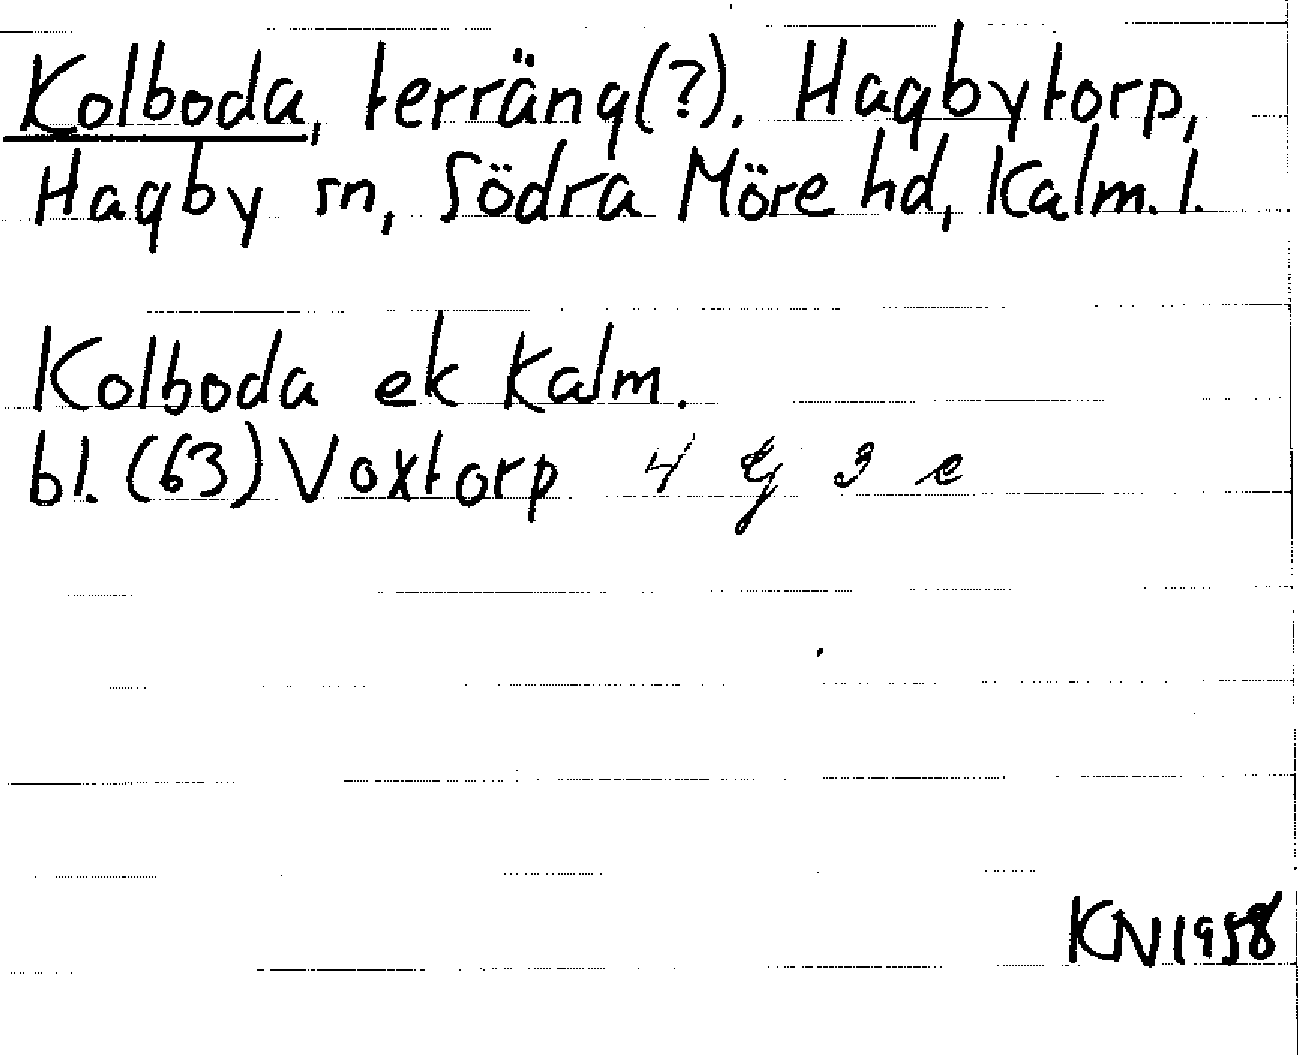 Kolboda, terräng(?). Hagbytorp,
Hagby sn, Södra Möre hd, Kalm. l.
Kolboda ek Kalm.
bl. (63) Voxtorp 4 G 3 e
KN 1958